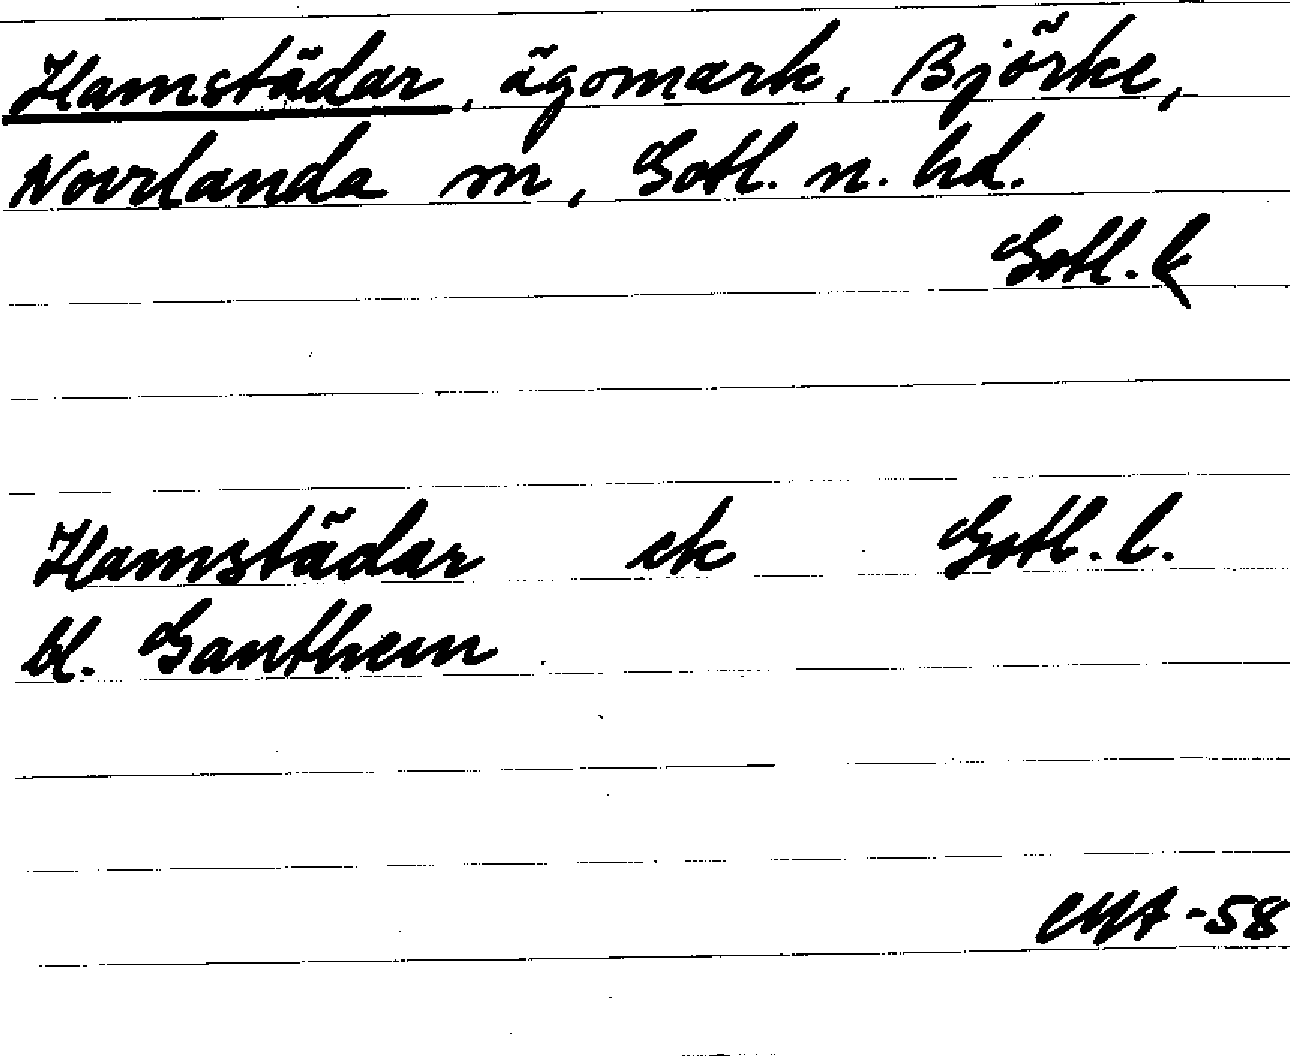 Hamstädar, ägomark, Björke,
Norrlanda sn, Gotl. n. hd.
Gotl. l
Hamstädar ek Gotl. l.
bl. Ganthem
-58